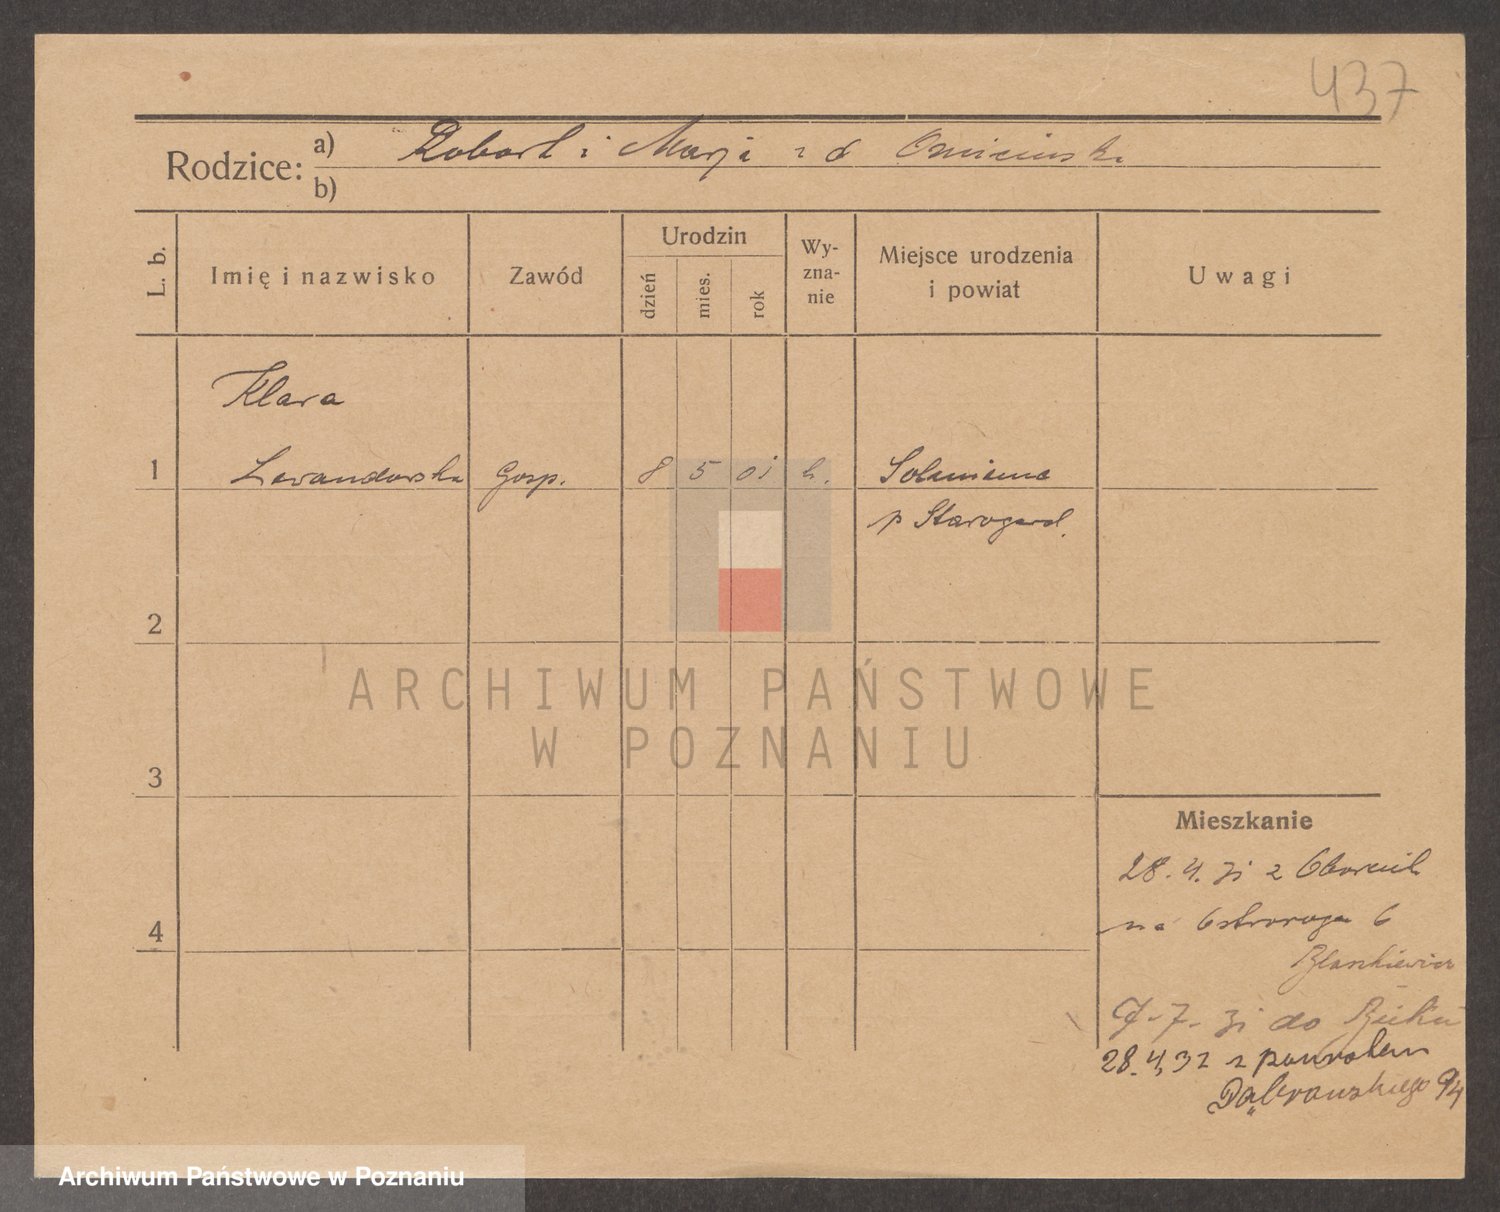 437
Rodzice: a) Robert i Marja z d
b)
L. b.
Imię i nazwisko
Zawód
Urodzin
dzień
mies.
rok
Wy-
zna-
nie
Miejsce urodzenia
i powiat
Uwagi
Klara
1 Lewandowska Gosp. 8 5 01 k.
p Starogard.
2
3
4
ARCHIWUM PAŃSTWOWE
W POZNANIU
Mieszkanie
28. 4. 31 z Obornik
na Ostroroga 6
Błaszkiewicz
7. 31 do
28. 4, 32 z powrotem
Dąbrowskiego 94
Archiwum Państwowe w Poznaniu